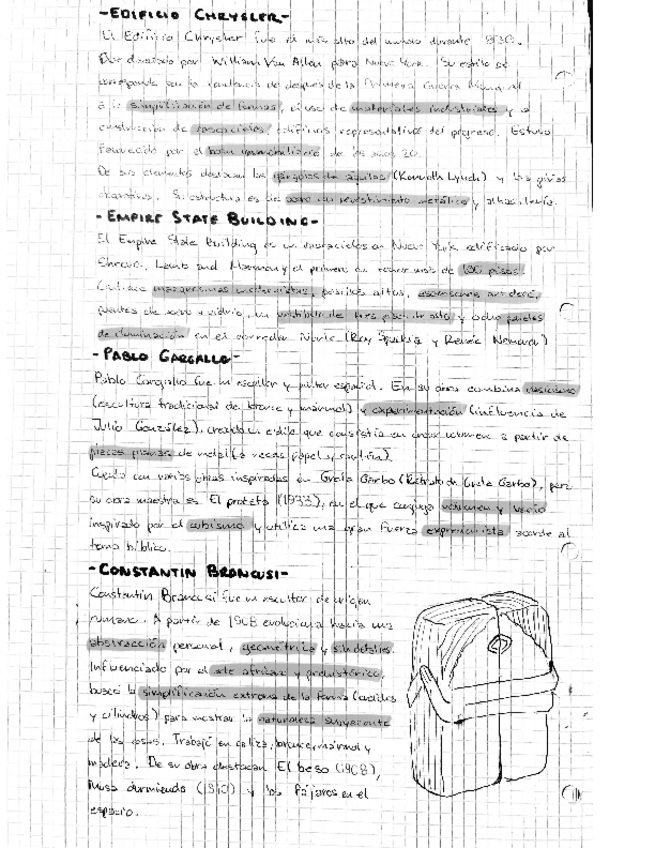 -EDIFICIO CHRYSLER-
El Edificio Chrysler fue el más alto del mundo durante 1930.
por William Van Allen para Nueva York. Su estilo se
corresponde con la tendencia de después de la Primera Guerra Mundial
a la simplificación de formas, el uso de materiales industriales y la
construcción de rascacielos, edificios representativos del progreso. Estuvo
favorecido por el boom inmobiliario de los años 20.
De sus elementos destacan las gárgolas de águilas (Kenneth Lynch) y los
Su estructura es de acero con revestimiento metálico y
-EMPIRE STATE BUILDING-
El Empire State Building es un rascacielos en Nueva York edificado por
Shreve, Lamb and Harmon y el primero en tener más de 100 pisos.
Contiene marquesinas modernistas, pasillos altos, ascensores art decó,
puentes de acero y vidrio, un vestíbulo de tres pisos de alto y ocho paneles
de iluminación en el corredor Norte (Roy Sparkia y Renée Nemorov)
-PABLO GARGALLO-
Pablo Gargallo fue un escultor y pintor español. En su obra combina clasicismo
(escultura tradicional de bronce y mármol) y experimentación (influencia de
Julio González), creando un estilo que consistía en crear volumen a partir de
piezas planas de metal (a veces papel y cartón).
Cuenta con varias obras inspiradas en Greta Garbo (Retrato de Greta Garbo), pero
su obra maestra es El profeta (1933), en el que conjuga volumen y vacío
inspirado por el cubismo y utiliza una gran fuerza expresionista acorde al
tema bíblico.
-CONSTANTIN BRANCUSI-
Constantin Brancusi fue un escultor de origen
rumano. A partir de 1908 evoluciona hacia una
abstracción personal, geométrica y sin detalles.
Influenciado por el arte africano y prehistórico,
buscó la simplificación extrema de la forma (ovoides
y cilindros) para mostrar la naturaleza subyacente
de las cosas. Trabajó en caliza, bronce, mármol y
madera. De su obra destacan El beso (1908),
Musa dormida (1910) y los Pájaros en el
espacio.